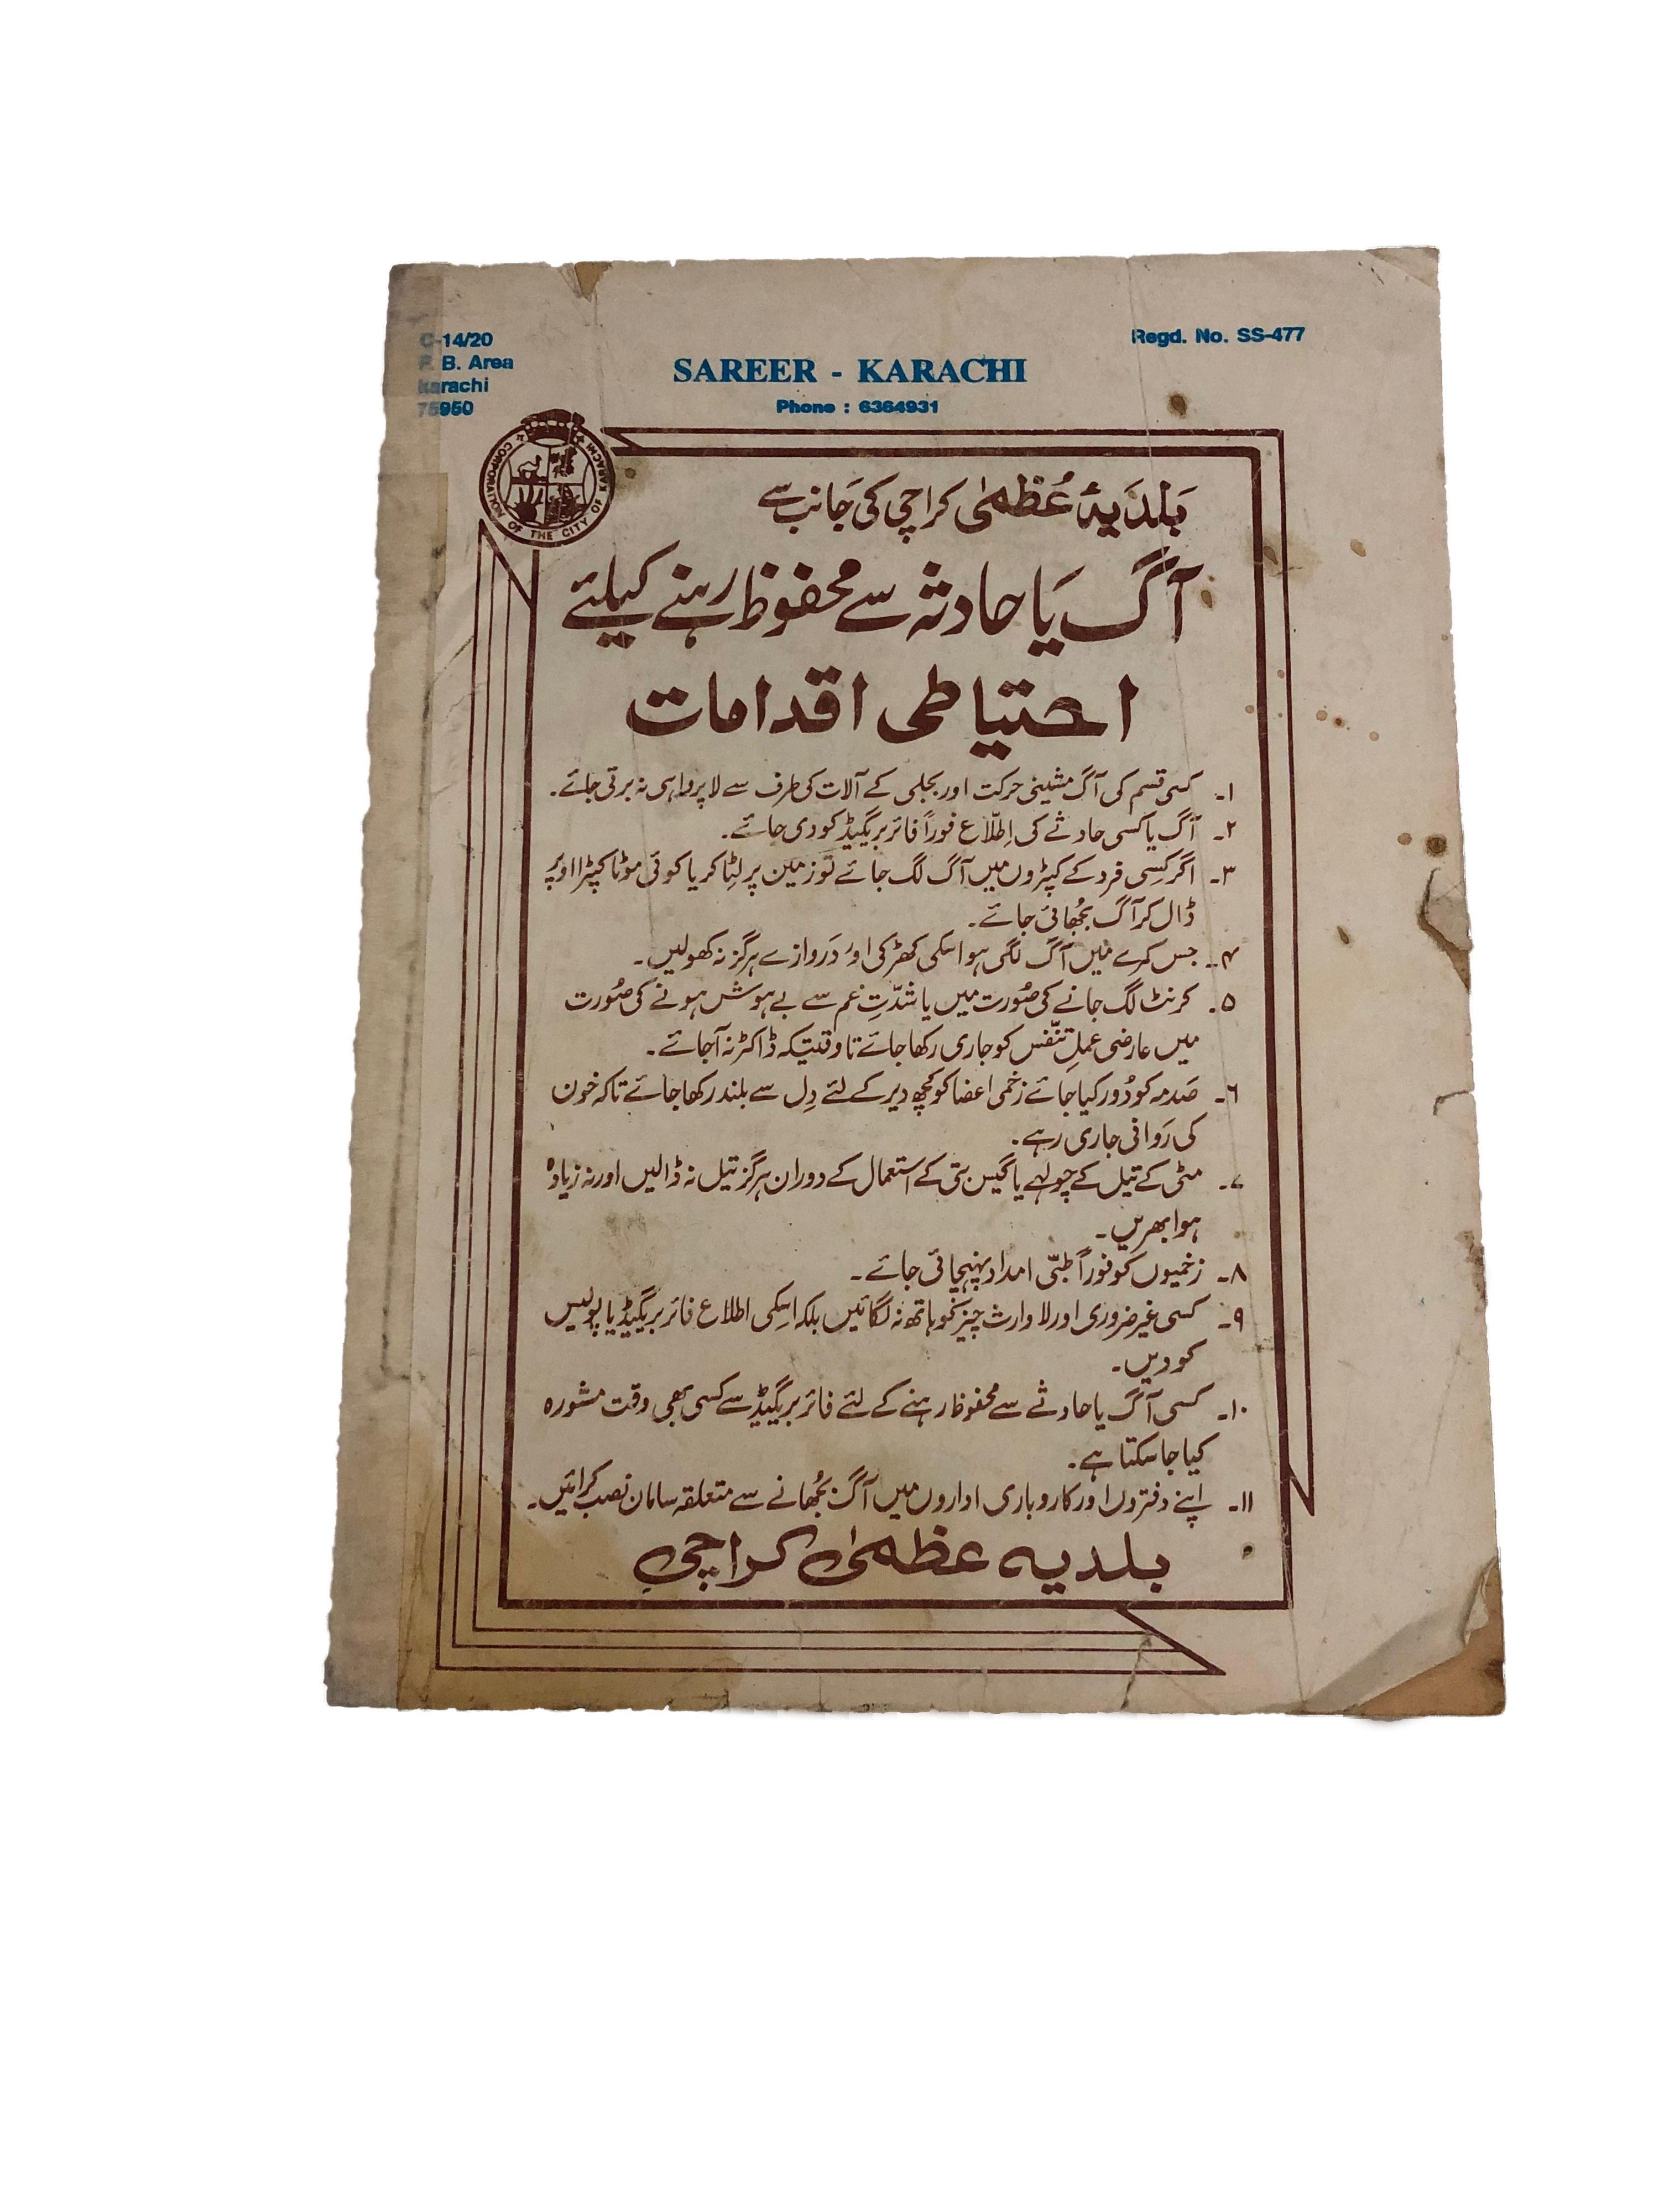 C-14/20
F. B. Area
karachi
75950
Regd. No. SS-477
SAREER - KARACHI
Phone : 6364931
CORPORATION OF THE CITY OF KARACHI
بَلدَیۂ عُظمیٰ کراچی کی جَانب سے
آگ یَا حادثہ سے محفوظ رہنے کیلئے
احتیاطی اقدامات
۱۔ کسی قسم کی آگ مشینی حرکت اور بجلی کے آلات کی طرف سے لاپرواہی نہ برتی جائے۔
۲۔ آگ یا کسی حادثے کی اِطلّاع فوراً فائر بریگیڈ کو دی جائے۔
۳۔ اگر کِسی فرد کے کپڑوں میں آگ لگ جائے تو زمین پر لِٹا کر یا کوئی موٹا کپڑا اوپر
ڈال کر آگ بُجھائی جائے۔
۴۔ جس کمرے میں آگ لگی ہو اسکی کھڑکی اور دَروازے ہرگز نہ کھولیں۔
۵۔ کرنٹ لگ جانے کی صُورت میں یا شدّتِ غم سے بے ہوش ہونے کی صُورت
میں عارضی عملِ تنفّس کو جاری رکھا جائے تاوقتیکہ ڈاکٹر نہ آجائے۔
۶۔ صَدمہ کو دُور کیا جَائے زخمی اعضا کو کچھ دیر کے لئے دِل سے بلند رکھا جائے تاکہ خون
کی رَوانی جاری رہے۔
۷۔ مٹی کے تیل کے چولہے یا گیس بتی کے استعمال کے دوران ہرگز تیل نہ ڈالیں اور نہ زیادہ
ہوا بھریں۔
۸۔ زخمیوں کو فوراً طبّی امداد پہنچائی جائے۔
۹۔ کسی غیر ضروری اور لاوارث چیز کو ہاتھ نہ لگائیں بلکہ اسِکی اطلاع فائر بریگیڈ یا پولیس
کو دیں۔
۱۰۔ کسی آگ یا حادثے سے محفوظ رہنے کے لئے فائر بریگیڈ سے کسی بھی وقت مشورہ
کیا جا سکتا ہے۔
۱۱۔ اپنے دفتروں اور کاروباری اداروں میں آگ بُجھانے سے متعلقہ سامان نصب کرائیں۔
بلدیہ عظمیٰ کراچی